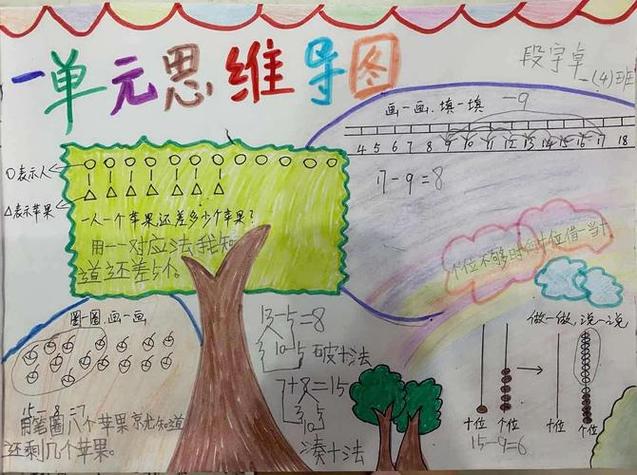 一单元思维导图
段宇卓
一(4)班
画一画.填一填
-9
4 5 6 7 8 9 10 11 12 13 14 15 16 17 18
17-9=8
○表示人
△表示苹果
一人一个苹果还差多少个苹果?
用一一对应法我知
道还差5个。
个位不够时向十位借一当十
圈一圈.画一画
15-8=7
用笔圈八个苹果就知道
还剩几个苹果。
13-5=8
10-5
破十法
7+8=15
3 5
10
凑十法
做一做,说一说
十位 个位 十位 个位
15-9=6